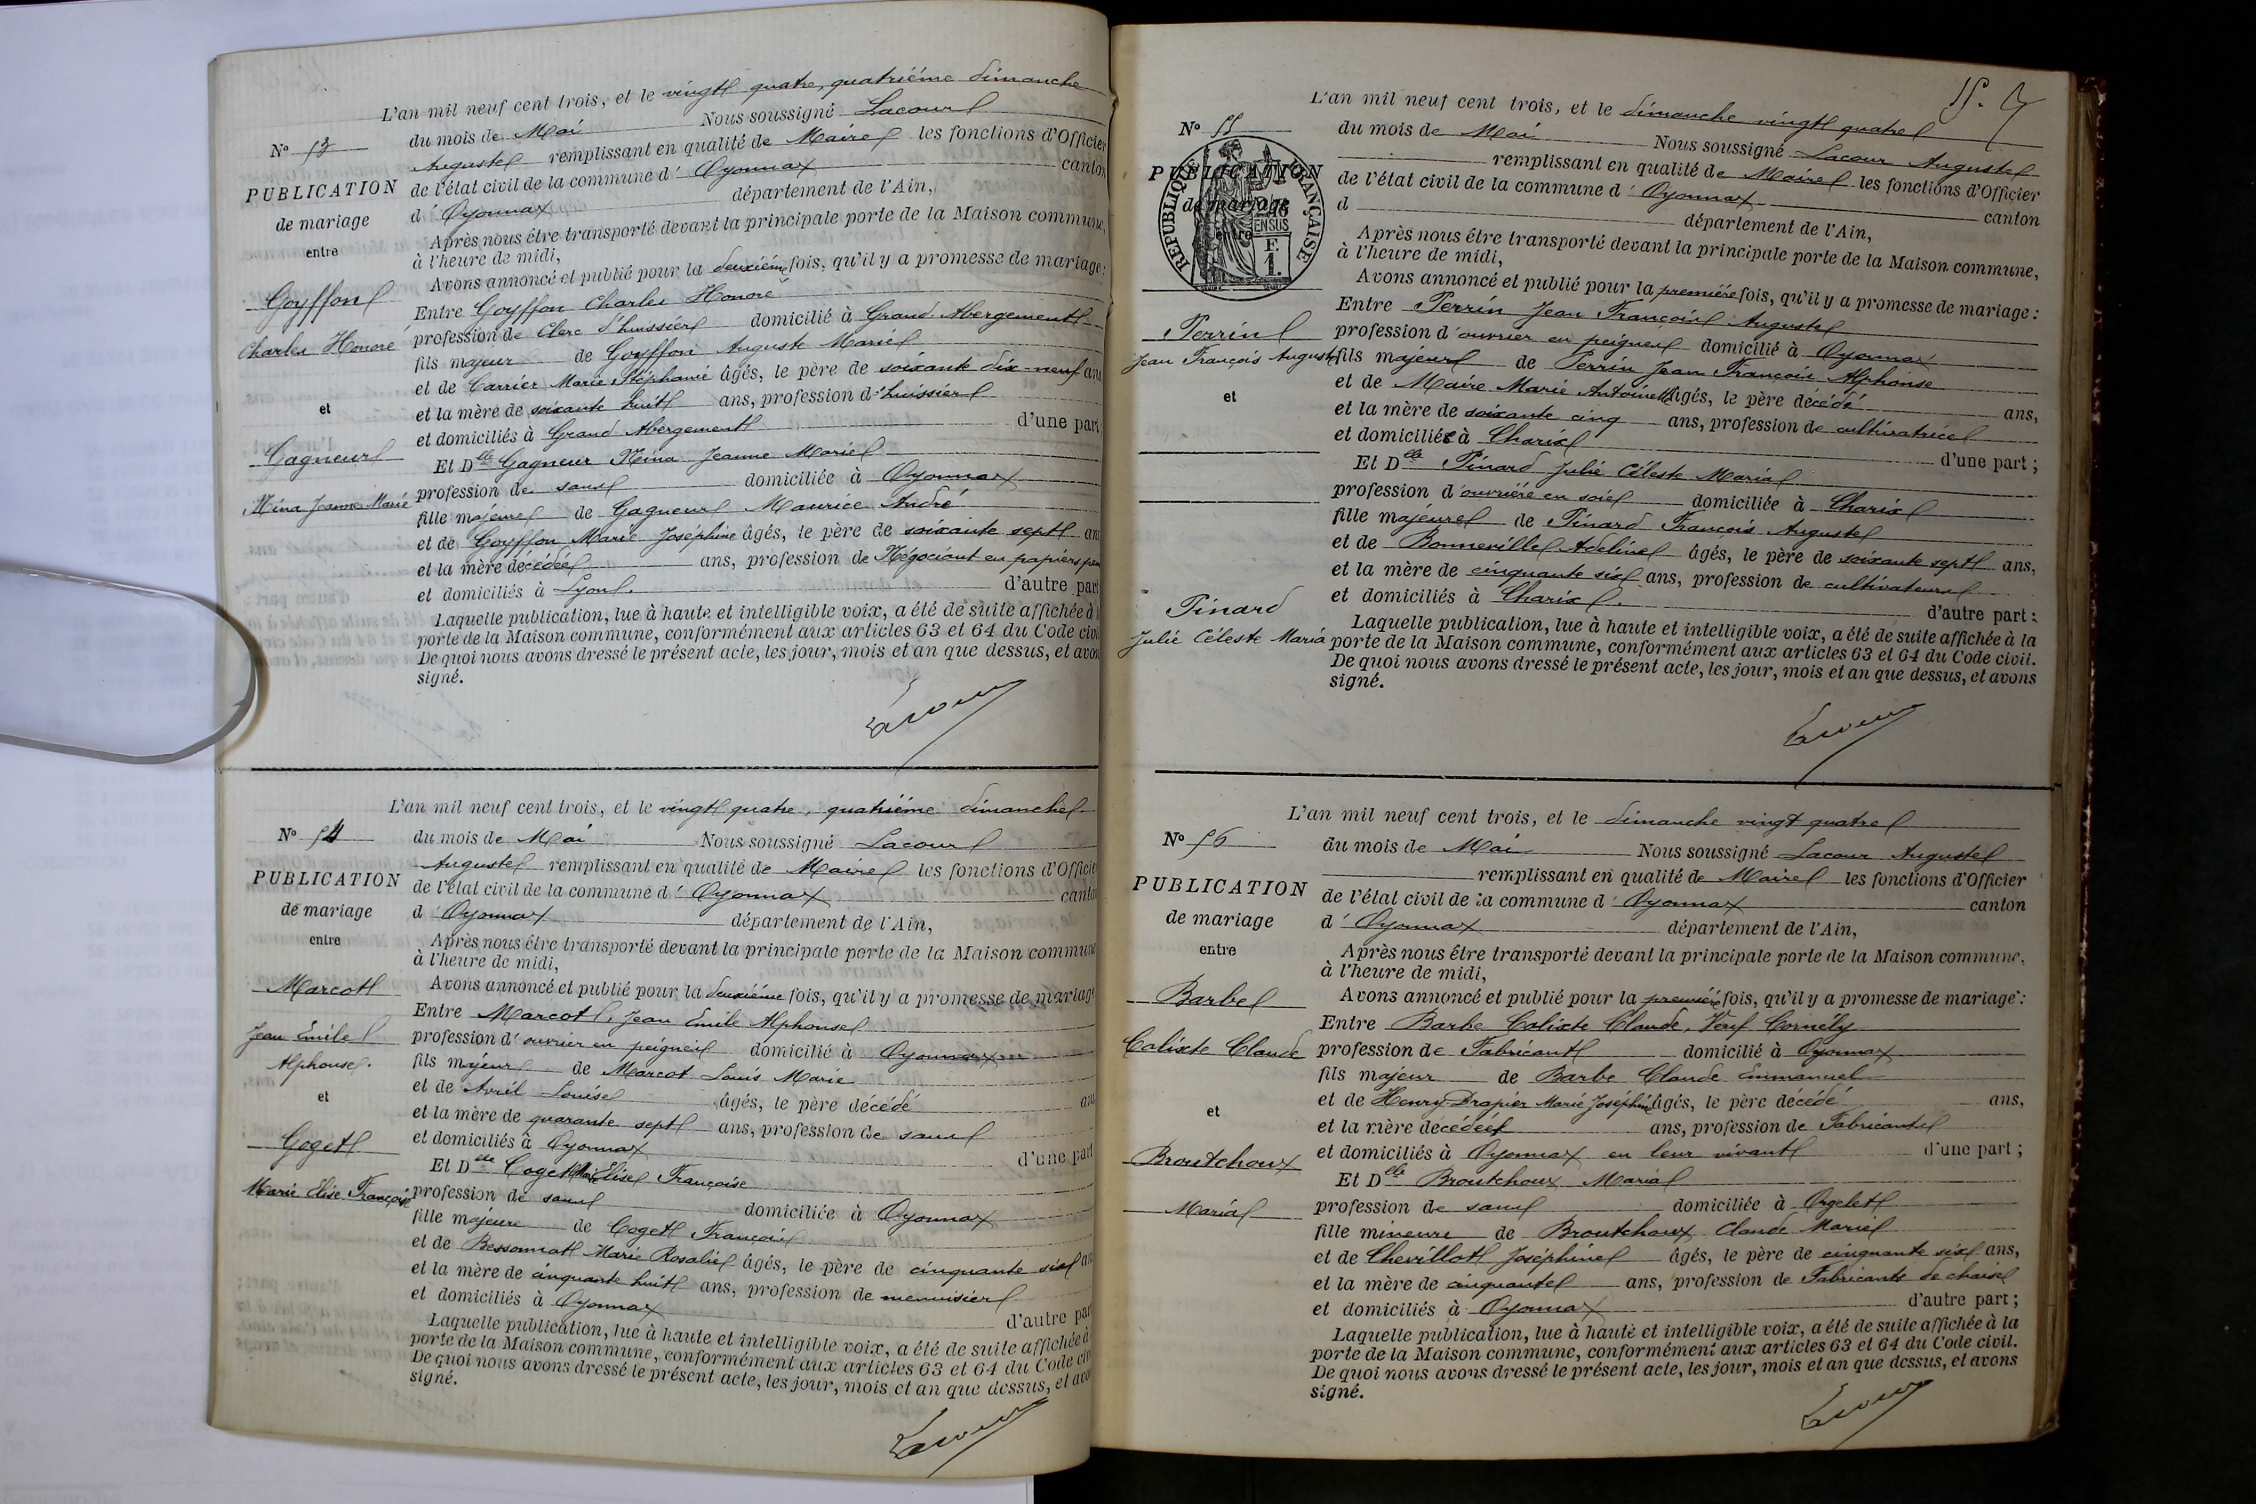 L'an mil neuf cent trois, et le vingt quatre, quatrième dimanche
N° 53
du mois de Mai Nous soussigné Lacour
Auguste remplissant en qualité de Maire les fonctions d'Officier
PUBLICATION
de l'état civil de la commune d' Oyonnax canton
de mariage
d' Oyonnax département de l'Ain,
entre
Après nous être transporté devant la principale porte de la Maison commune,
à l'heure de midi,
Avons annoncé et publié pour la deuxième fois, qu'il y a promesse de mariage:
Goyffon
Entre Goyffon Charles Honoré
Charles Honoré
profession de Clerc d'huissier domicilié à Grand Abergement
fils majeur de Goyffon Auguste Marie
et de Carrier Marie Stéphanie âgés, le père de soixante dix-neuf ans
et
et la mère de soixante huit ans, profession d'huissier
et domiciliés à Grand Abergement d'une part
Gagneur
Et Delle Gagneur Nina Jeanne Marie
Nina Jeanne Marie
profession de sans domiciliée à Oyonnax
fille majeure de Gagneur Maurice André
et de Goyffon Marie Joséphine âgés, le père de soixante sept ans
et la mère décédée ans, profession de Négociant en papiers
et domiciliés à Lyon. d'autre part
Laquelle publication, lue à haute et intelligible voix, a été de suite affichée à
porte de la Maison commune, conformément aux articles 63 et 64 du Code civil
De quoi nous avons dressé le présent acte, les jour, mois et an que dessus, et avons
signé.
Lacour
L'an mil neuf cent trois, et le vingt quatre, quatrième dimanche
N° 54
du mois de Mai Nous soussigné Lacour
Auguste remplissant en qualité de Maire les fonctions d'Officier
PUBLICATION
de l'état civil de la commune d' Oyonnax canton
de mariage
d' Oyonnax département de l'Ain,
entre
Après nous être transporté devant la principale porte de la Maison commune
à l'heure de midi,
Marcot
Avons annoncé et publié pour la deuxième fois, qu'il y a promesse de mariage
Entre Marcot, Jean Emile Alphonse
Jean Emile
Alphonse.
profession d'ouvrier en peignes domicilié à Oyonnax
fils majeur de Marcot Louis Marie
et
et de Avril Louise âgés, le père décédé ans
et la mère de quarante sept ans, profession de sans
Coget
et domiciliés à Oyonnax d'une part
Et Delle Coget Marie Elise Françoise
Marie Elise Françoise
profession de sans domiciliée à Oyonnax
fille majeure de Coget François
et de Bessonnat Marie Rosalie âgés, le père de cinquante six ans
et la mère de cinquante huit ans, profession de menuisier
et domiciliés à Oyonnax d'autre part
Laquelle publication, lue à haute et intelligible voix, a été de suite affichée à
porte de la Maison commune, conformément aux articles 63 et 64 du Code civ
De quoi nous avons dressé le présent acte, les jour, mois et an que dessus, et avo
signé.
Lacour
L'an mil neuf cent trois, et le dimanche vingt quatre
N° 55
du mois de Mai Nous soussigné Lacour Auguste
PUBLICATION
remplissant en qualité de Maire les fonctions d'Officier
de mariage
de l'état civil de la commune d' Oyonnax canton
entre
d département de l'Ain,
RÉPUBLIQUE FRANÇAISE
Après nous être transporté devant la principale porte de la Maison commune,
à l'heure de midi,
Avons annoncé et publié pour la première fois, qu'il y a promesse de mariage:
Perrin
Entre Perrin Jean François Auguste
Jean François Auguste
profession d'ouvrier en peignes domicilié à Oyonnax
fils majeur de Perrin Jean François Alphonse
et
et de Maire Marie Antoinette âgés, le père décédé ans,
et la mère de soixante cinq ans, profession de cultivatrice
et domiciliée à Charix d'une part;
Et Delle Pinard Julie Céleste Maria
profession d'ouvrière en soie domiciliée à Charix
fille majeure de Pinard François Auguste
et de Bonneville Adeline âgés, le père de soixante sept ans,
et la mère de cinquante six ans, profession de cultivateurs
Pinard
Julie Céleste Maria
et domiciliés à Charix. d'autre part:
Laquelle publication, lue à haute et intelligible voix, a été de suite affichée à la
porte de la Maison commune, conformément aux articles 63 et 64 du Code civil.
De quoi nous avons dressé le présent acte, les jour, mois et an que dessus, et avons
signé.
Lacour
L'an mil neuf cent trois, et le dimanche vingt quatre
N° 56
du mois de Mai Nous soussigné Lacour Auguste
remplissant en qualité de Maire les fonctions d'Officier
PUBLICATION
de l'état civil de la commune d' Oyonnax canton
de mariage
d' Oyonnax département de l'Ain,
entre
Après nous être transporté devant la principale porte de la Maison commune,
à l'heure de midi,
Barbe
Avons annoncé et publié pour la première fois, qu'il y a promesse de mariage:
Entre Barbe Calixte Claude, Veuf Cornély
Calixte Claude
profession de Fabricant domicilié à Oyonnax
fils majeur de Barbe Claude Emmanuel
et
et de Henry Drapier Marie Joséphine âgés, le père décédé ans,
et la mère décédée ans, profession de Fabricants
Broutchoux
et domiciliés à Oyonnax en leur vivant d'une part;
Et Delle Broutchoux Maria
Maria
profession de sans domiciliée à Orgelet
fille mineure de Broutchoux Claude Marie
et de Chevillot Joséphine âgés, le père de cinquante six ans,
et la mère de cinquante ans, profession de Fabricants de chaises
et domiciliés à Oyonnax d'autre part;
Laquelle publication, lue à haute et intelligible voix, a été de suite affichée à la
porte de la Maison commune, conformément aux articles 63 et 64 du Code civil.
De quoi nous avons dressé le présent acte, les jour, mois et an que dessus, et avons
signé.
Lacour